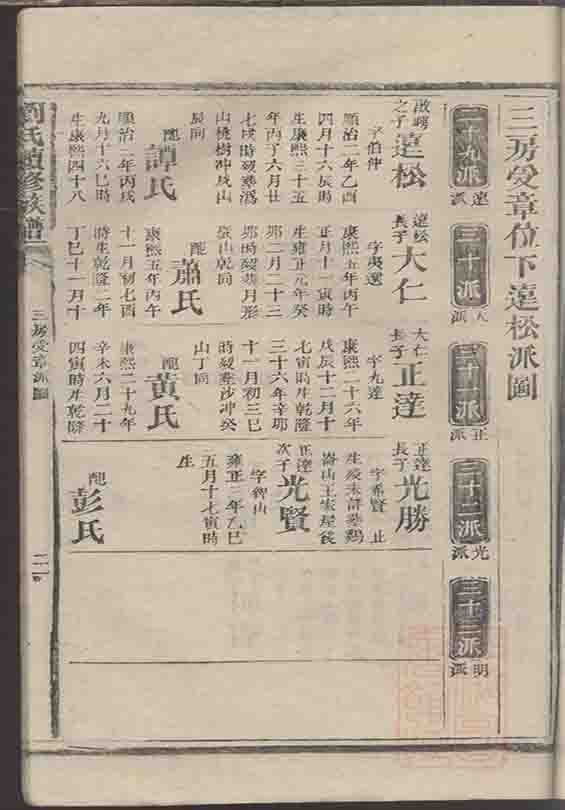 三房受章位下遠松派圖
二十九派
遠派
三十派
大派
三十一派
正派
三十二派
光派
三十三派
明派
之子
遠松
字伯仲
順治二年乙酉
四月十六辰時
生康熙三十五
年丙子六月廿
七戌時歿葬溈
山桃樹冲戌山
辰向
配
譚氏
順治三年丙戌
九月十六巳時
生康熙四十八
遠松
長子
大仁
字夷選
康熙五年丙午
正月十一寅時
生雍正元年癸
卯二月二十三
卯時歿葬月形
巽山乾向
配
蕭氏
康熙五年丙午
十一月初七酉
時生乾隆二年
丁巳十一月十
大仁
長子
正達
字九達
康熙二十六年
戊辰十二月十
七寅時生乾隆
三十六年辛卯
十一月初三巳
時歿葬沙冲癸
山丁向
配
黃氏
康熙二十九年
辛未六月二十
四寅時生乾隆
正達
長子
光勝
字希賢 止
生歿未詳葬鷄
崙山王家屋後
正達
次子
光賢
字智山
雍正二年乙巳
五月十七寅時
生
配
彭氏
劉氏續修族譜
三房受章派圖